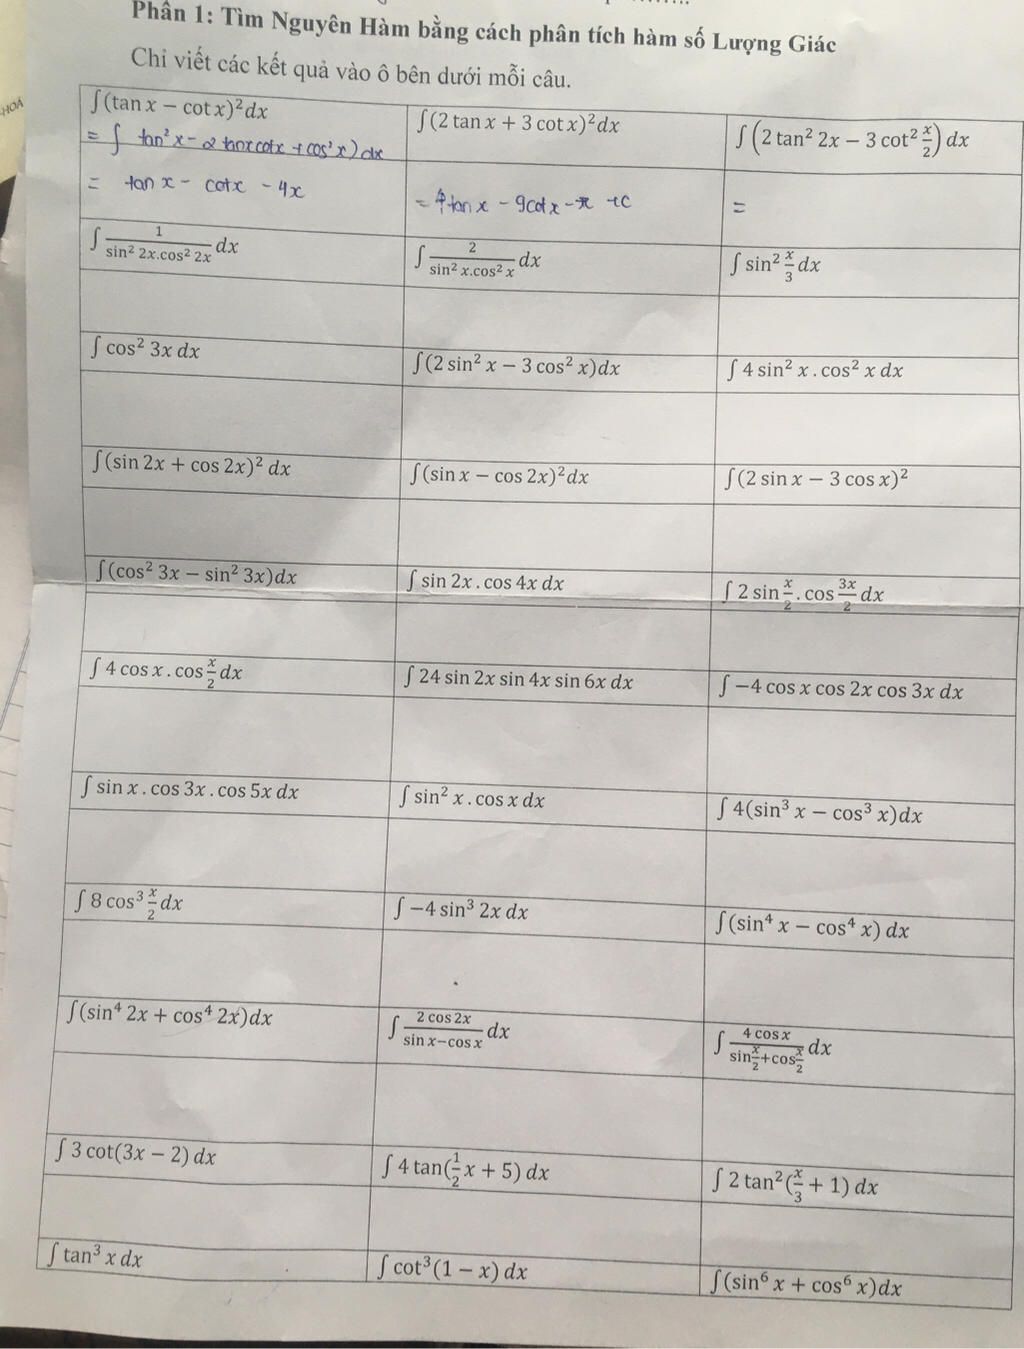 Phần 1: Tìm Nguyên Hàm bằng cách phân tích hàm số Lượng Giác
Chỉ viết các kết quả vào ô bên dưới mỗi câu.
HOÁ
∫(tan x − cot x)²dx
∫(2 tan x + 3 cot x)²dx
∫(2 tan² 2x − 3 cot² x/2) dx
= ∫ tan²x − 2 tanx cotx + cos²x) dx
= tan x − cotx − 4x
= 4tan x − 9cot x − x + C
=
∫ 1/(sin² 2x.cos² 2x) dx
∫ 2/(sin² x.cos² x) dx
∫ sin² x/3 dx
∫ cos² 3x dx
∫(2 sin² x − 3 cos² x)dx
∫ 4 sin² x . cos² x dx
∫(sin 2x + cos 2x)² dx
∫(sin x − cos 2x)²dx
∫(2 sin x − 3 cos x)²
∫(cos² 3x − sin² 3x)dx
∫ sin 2x . cos 4x dx
∫ 2 sin x/2 . cos 3x/2 dx
∫ 4 cos x . cos x/2 dx
∫ 24 sin 2x sin 4x sin 6x dx
∫ −4 cos x cos 2x cos 3x dx
∫ sin x . cos 3x . cos 5x dx
∫ sin² x . cos x dx
∫ 4(sin³ x − cos³ x)dx
∫ 8 cos³ x/2 dx
∫ −4 sin³ 2x dx
∫(sin⁴ x − cos⁴ x) dx
∫(sin⁴ 2x + cos⁴ 2x)dx
∫ 2 cos 2x/(sin x−cos x) dx
∫ 4 cos x/(sin x/2 + cos x/2) dx
∫ 3 cot(3x − 2) dx
∫ 4 tan(1/2 x + 5) dx
∫ 2 tan²(x/3 + 1) dx
∫ tan³ x dx
∫ cot³(1 − x) dx
∫(sin⁶ x + cos⁶ x)dx